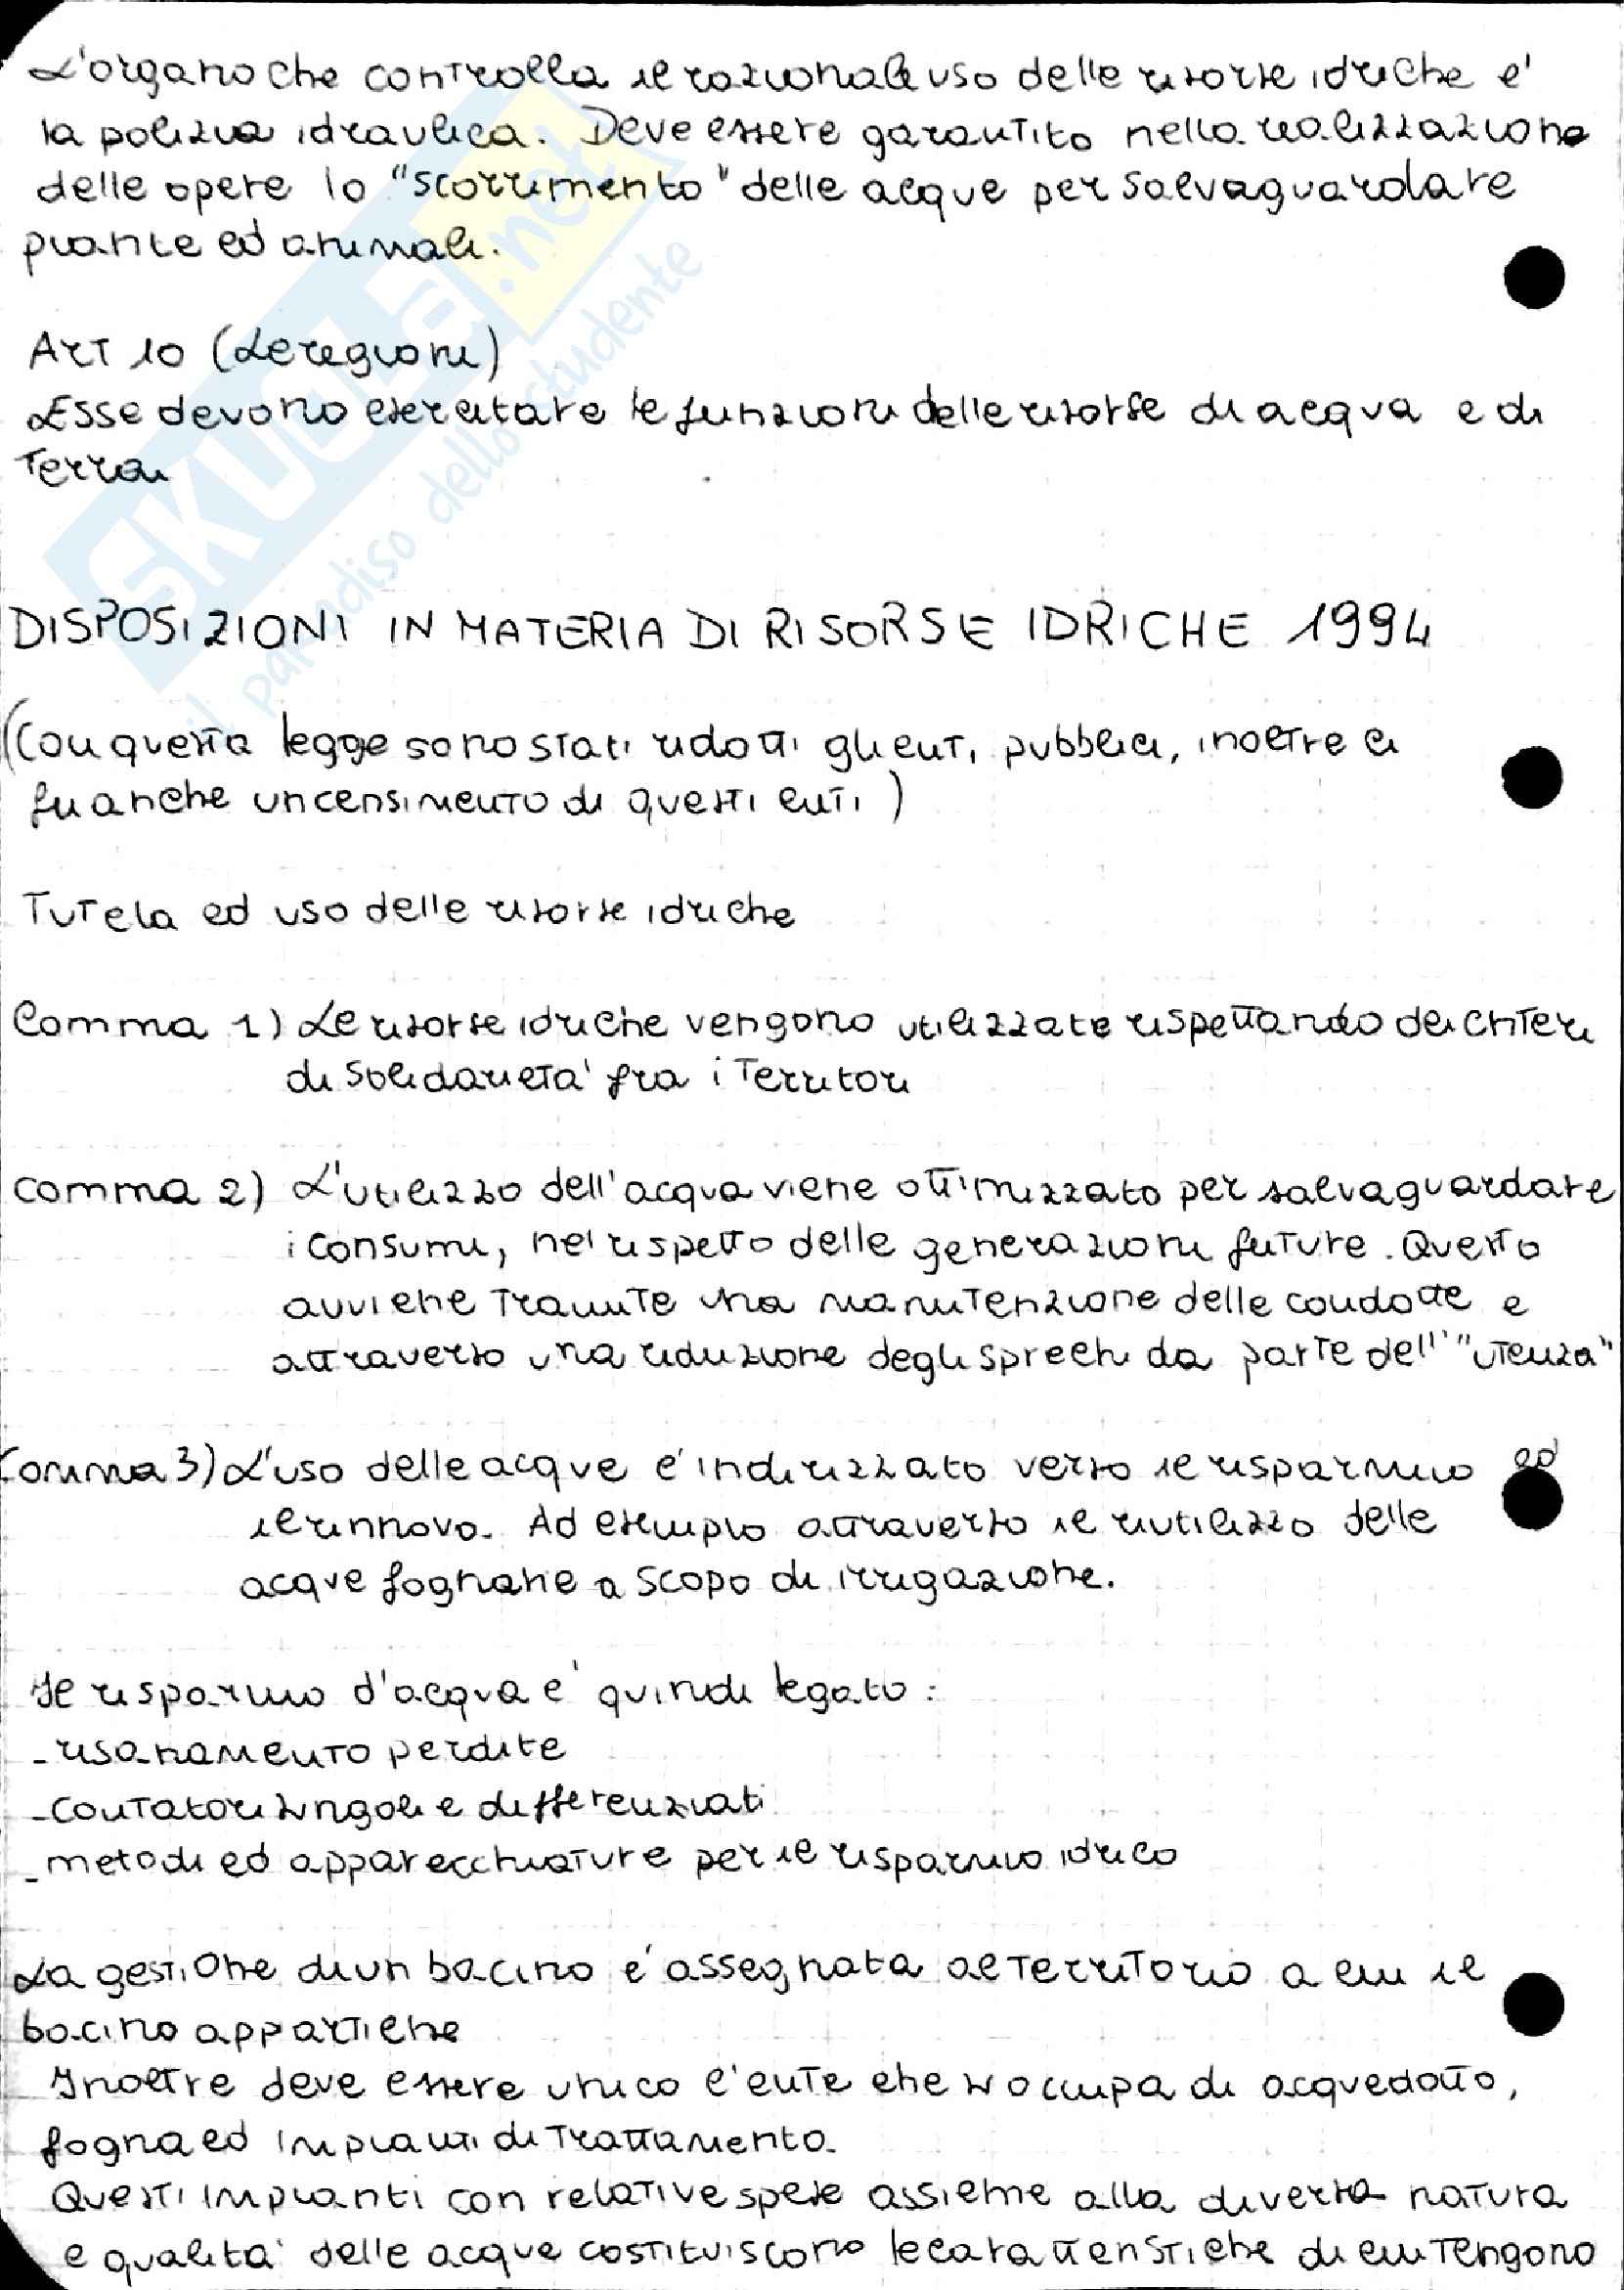 L'organo che controlla il razionale uso delle risorse idriche e'
la polizia idraulica. Deve essere garantito nella realizzazione
delle opere lo "scorrimento" delle acque per salvaguardare
piante ed animali.
Art 10 (Le regioni)
Esse devono esercitare le funzioni delle risorse di acqua e di
Terra
DISPOSIZIONI IN MATERIA DI RISORSE IDRICHE 1994
(Con questa legge sono stati ridotti gli enti pubblici, inoltre ci
fu anche un censimento di questi enti)
Tutela ed uso delle risorse idriche
Comma 1) Le risorse idriche vengono utilizzate rispettando dei criteri
di solidarietà fra i Territori
Comma 2) L'utilizzo dell'acqua viene ottimizzato per salvaguardare
i consumi, nel rispetto delle generazioni future. Questo
avviene tramite una manutenzione delle condotte e
attraverso una riduzione degli sprechi da parte dell'"utenza"
Comma 3) L'uso delle acque e' indirizzato verso il risparmio ed
il rinnovo. Ad esempio attraverso il riutilizzo delle
acque fognarie a scopo di irrigazione.
Il risparmio d'acqua e' quindi legato:
- risanamento perdite
- contatori singoli e differenziati
- metodi ed apparecchiature per il risparmio idrico
La gestione di un bacino e' assegnata al territorio a cui il
bacino appartiene
Inoltre deve essere unico l'ente che si occupa di acquedotto,
fogna ed impianti di trattamento.
Questi impianti con relative spese assieme alla diversa natura
e qualita' delle acque costituiscono le caratteristiche di cui tengono
SKUOLA.net
il paradiso dello studente